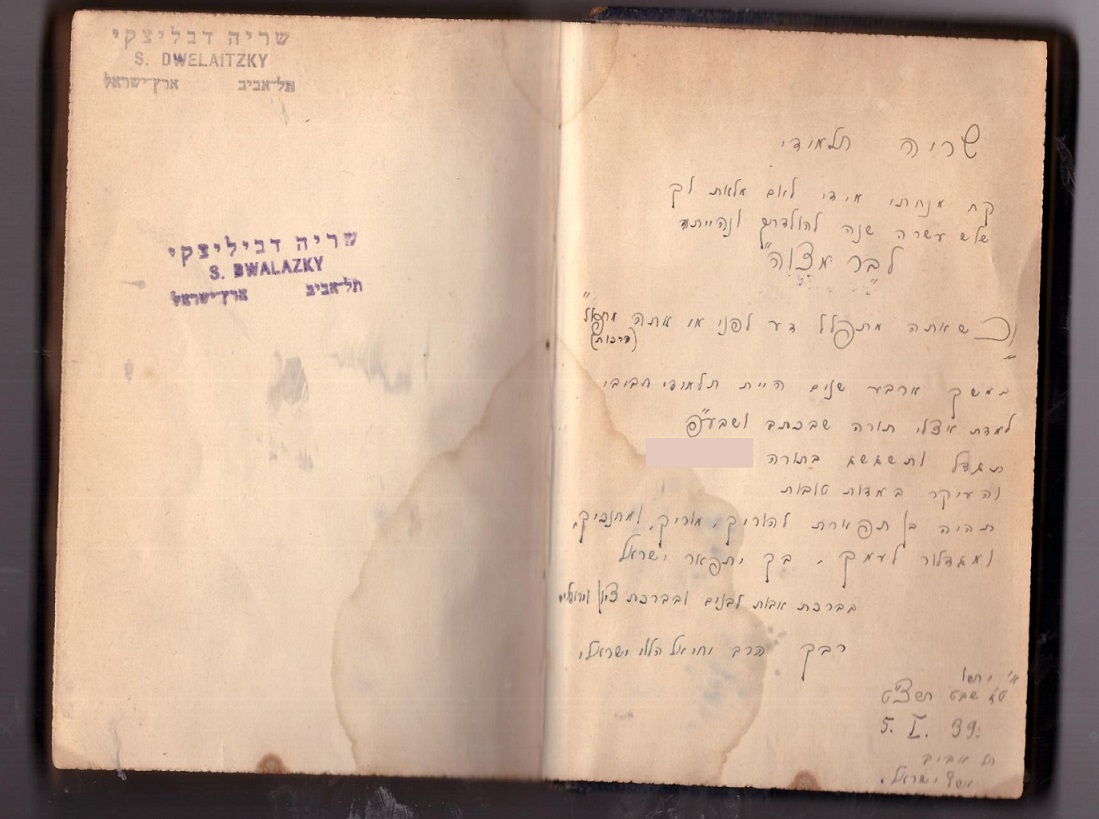 שריה דבליצקי
S. DWELAITZKY
תל־אביב ארץ־ישראל
שריה דביליצקי
S. DWALAZKY
תל־אביב ארץ־ישראל
שריה תלמידי
קח מנחתי מידי לאום מלאת לך
שלש עשרה שנה להולדתך ונהיית
לבר מצוה"
וכשאתה מתפלל דע לפני מי אתה מתפלל"
(ברכות)
במשך ארבע שנים היית תלמידי חביבי
למדת אצלי תורה שבכתב ושבע"פ
תגדל ותשגשג בתורה
והעיקר במדות טובות
תהיה בן תפארת להוריך, מוריך, ומחנכיך,
ומגדלור לעמך, בך יתפאר ישראל
בברכת אבות לבנים ובברכת ציון
רבך הרב יחיאל הלוי ישראלי
טו שבט תרצ"ט
5. I. 39.
תל אביב
ארץ ישראל.